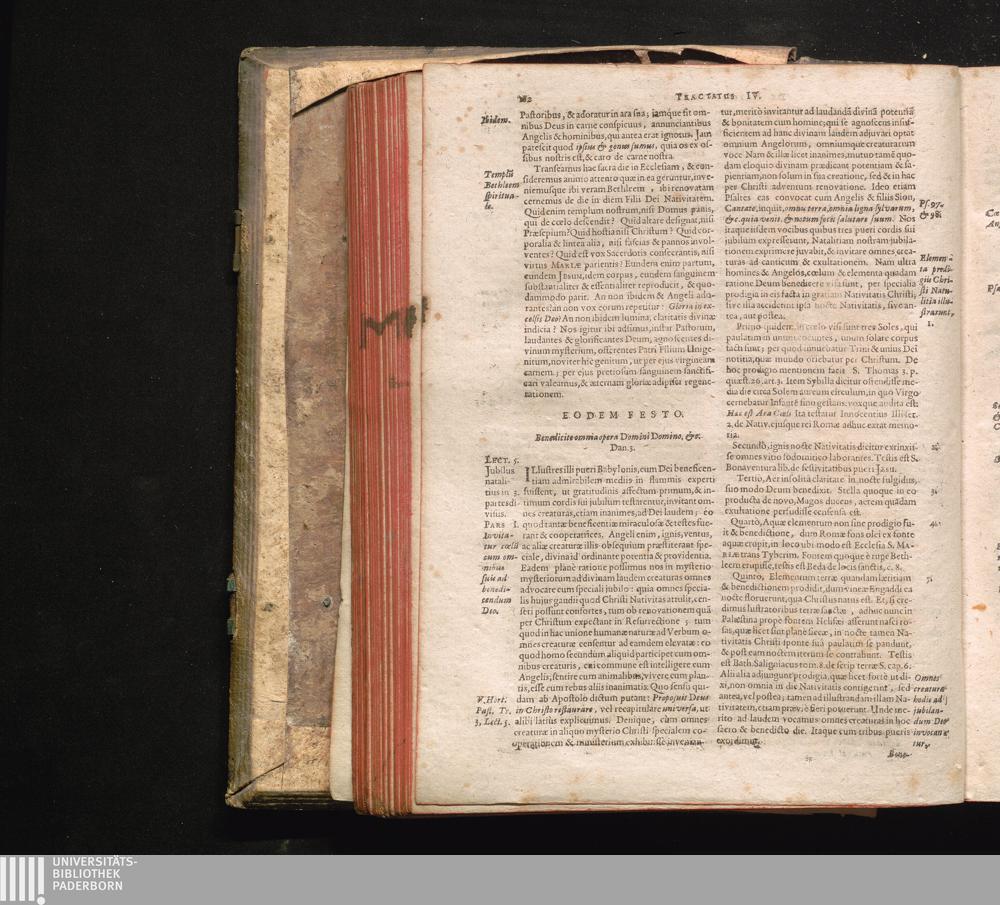 TRACTATUS IV.
Ibidem.
Pastoribus, & adoratur in ara sua; iamque fit om-
nibus Deus in carne conspicuus, annunciantibus
Angelis & hominibus, qui antea erat ignotus. Jam
patescit quod ipsius & genus sumus, quia os ex os-
sibus nostris est, & caro de carne nostra.
Templũ
Bethleem
spiritua-
le.
Transeamus hac sacra die in Ecclesiam, & con-
sideremus animo attento quæ in ea geruntur, inve-
niemusque ibi veram Bethleem, ibi renovatam
cernemus de die in diem Filii Dei Nativitatem.
Quid enim templum nostrum, nisi Domus panis,
qui de cœlo descendit? Quid altare designat, nisi
Præsepium? Quid hostia nisi Christum? Quid cor-
poralia & lintea alia, nisi fascias & pannos invol-
ventes? Quid est vox Sacerdotis consecrantis, nisi
virtus MARIÆ parientis? Eundem enim partum,
eundem Jesum, idem corpus, eundem sanguinem
substantialiter & essentialiter reproducit, & quo-
dammodo parit. An non ibidem & Angeli ado-
rantes? an non vox eorum repetitur: Gloria in ex-
celsis Deo? An non ibidem lumina, claritatis divinæ
indicia? Nos igitur ibi adsimus, instar Pastorum,
laudantes & glorificantes Deum, agnoscentes di-
vinum mysterium, offerentes Patri Filium Unige-
nitum, noviter hic genitum, ut per ejus virgineam
carnem; per ejus pretiosum sanguinem sanctifi-
cari valeamus, & æternam gloriæ adipisci regene-
rationem.
EODEM FESTO.
Benedicite omnia opera Domini Domino, &c.
Dan. 3.
LECT. 5.
Jubilus
natali-
tius in 3.
partes di-
visus.
PARS I.
Invita-
tur cœlũ
cum om-
nibus
suis ad
benedi-
cendum
Deo.
ILlustres illi pueri Babylonis, cum Dei beneficen-
tiam admirabilem mediis in flammis experti
fuissent, ut gratitudinis affectum primum, & in-
timum cordis sui jubalum testarentur, invitant om-
nes creaturas, etiam inanimes, ad Dei laudem; eo
quod tantæ beneficentiæ miraculosæ & testes fue-
rant & cooperatrices. Angeli enim, ignis, ventus,
ac aliæ creaturæ illis obsequium præstiterant spe-
ciale, divina id ordinante potentia & providentia.
Eadem planè ratione possimus nos in mysterio
mysteriorum ad divinam laudem creaturas omnes
advocare cum speciali jubilo: quia omnes specia-
lis hujus gaudii quod Christi Nativitas attulit, cen-
seri possunt consortes, tum ob renovationem quã
per Christum expectant in Resurrectione; tum
quod in hac unione humanæ naturæ ad Verbum o-
mnes creaturæ censentur ad eamdem elevatæ: eo
quod homo secundùm aliquid participet cum om-
nibus creaturis, cui commune est intelligere cum
Angelis, sentire cum animalibus, vivere cum plan-
tis, esse cum rebus aliis inanimatis. Quo sensu qui-
dam ab Apostolo dictum putant: Proposuit Deus
in Christo restaurare, vel recapitulare universa, ut
alibi latius explicuimus. Denique, cùm omnes
creaturæ in aliquo mysterio Christi specialem co-
operationem & ministerium exhibuisse invenian-
V. Hort.
Past. Tr.
3, Lect. 5.
tur, meritò invitantur ad laudandã divinã potentiã
& bonitatem cum homine; qui se agnoscens insuf-
ficientem ad hanc divinam laudem adjuvari optat
omnium Angelorum, omniumque creaturarum
voce. Nam & illæ licet inanimes, mutuo tamẽ quo-
dam eloquio divinam prædicant potentiam & sa-
pientiam, non solum in sua creatione, sed & in hac
per Christi adventum renovatione. Ideo etiam
Psaltes eas convocat cum Angelis & filiis Sion,
Cantate, inquit, omnis terra, omnia ligna sylvarum,
&c. quia venit, & notum fecit salutare suum. Nos
itaque iisdem vocibus quibus tres pueri cordis sui
jubilum expresserunt, Natalitiam nostram jubila-
tionem exprimere juvabit, & invitare omnes crea-
turas ad canticum & exultationem. Nam ultra
homines & Angelos, cœlum & elementa quadam
ratione Deum benedicere visa sunt, per specialia
prodigia in eis facta in gratiam Nativitatis Christi,
sive illa acciderint ipsa nocte Nativitatis, sive an-
tea, aut postea.
Ps. 97.
& 98.
Elemen-
ta prodi-
giis Chri-
sti Nativi-
litia illu-
strarunt,
1.
Primo quidem, in cœlo visi sunt tres Soles, qui
paulatim in unum coeuntes, unum solare corpus
facti sunt; per quod innuebatur Trini & unius Dei
notitia, quæ mundo oriebatur per Christum. De
hoc prodigio mentionem facit S. Thomas 3. p.
quæst. 26. art. 3. Item Sybilla dicitur ostendisse me-
dia die circa Solem aureum circulum, in quo Virgo
cernebatur Infantẽ sinu gestans, voxque audita est:
Hæc est Ara Cœli. Ita testatur Innocentius III. ser.
2. de Nativ. ejusque rei Romæ adhuc extat memo-
ria.
Secundò, ignis nocte Nativitatis dicitur extinxis-
se omnes vitio sodomitico laborantes. Testis est S.
Bonaventura lib. de festivitatibus pueri Jasu.
2.
Tertio, Aer insolita claritate in nocte fulgidus,
suo modo Deum benedixit. Stella quoque in eo
producta de novo, Magos ducens, aerem quadam
exultatione persudisse censenda est.
3.
Quartò, Aquæ elementum non sine prodigio fu-
it & benedictione, dum Romæ fons olei ex fonte
aquæ erupit, in loco ubi modo est Ecclesia S. MA-
RIÆ trans Tyberim. Fontem quoque è rupe Beth-
leem erupisse, testis est Beda de locis sanctis, c. 8.
4.
Quinto, Elementum terræ quamdam lætitiam
& benedictionem prodidit, dum vineæ Engaddi ea
nocte floruerunt, qua Christus natus est. Et, si cre-
dimus lustratoribus terræ sanctæ, adhuc nunc in
Palæstina prope fontem Helisæi asserunt nasci ro-
sas, quæ licet sint planè siccæ, in nocte tamen Na-
tivitatis Christi sponte suâ paulatim se pandunt,
& post eam noctem iterum se contrahunt. Testis
est Bath. Saligniacus tom. 8. de scrip terræ S. cap. 6.
Alii alia adjungunt prodigia, quæ licet fortè ut di-
xi, non omnia in die Nativitatis contigerint, sed
antea, vel postea; tamen ad illustrandam illam Na-
tivitatem, etiam præviè fieri potuerunt. Unde me-
rito ad laudem vocamus omnes creaturas in hoc
sacro & benedicto die. Itaque cum tribus pueris
exordimur.
5.
Omnes
creaturæ
hodie ad
jubilan-
dum Deo
invocan-
tur.
Bene-
UNIVERSITÄTS-
BIBLIOTHEK
PADERBORN